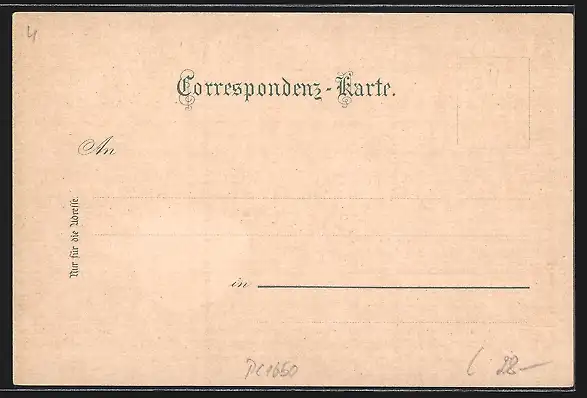 4
Correspondenz-Karte.
An
Nur für die Adresse.
in
PC1650
28.—